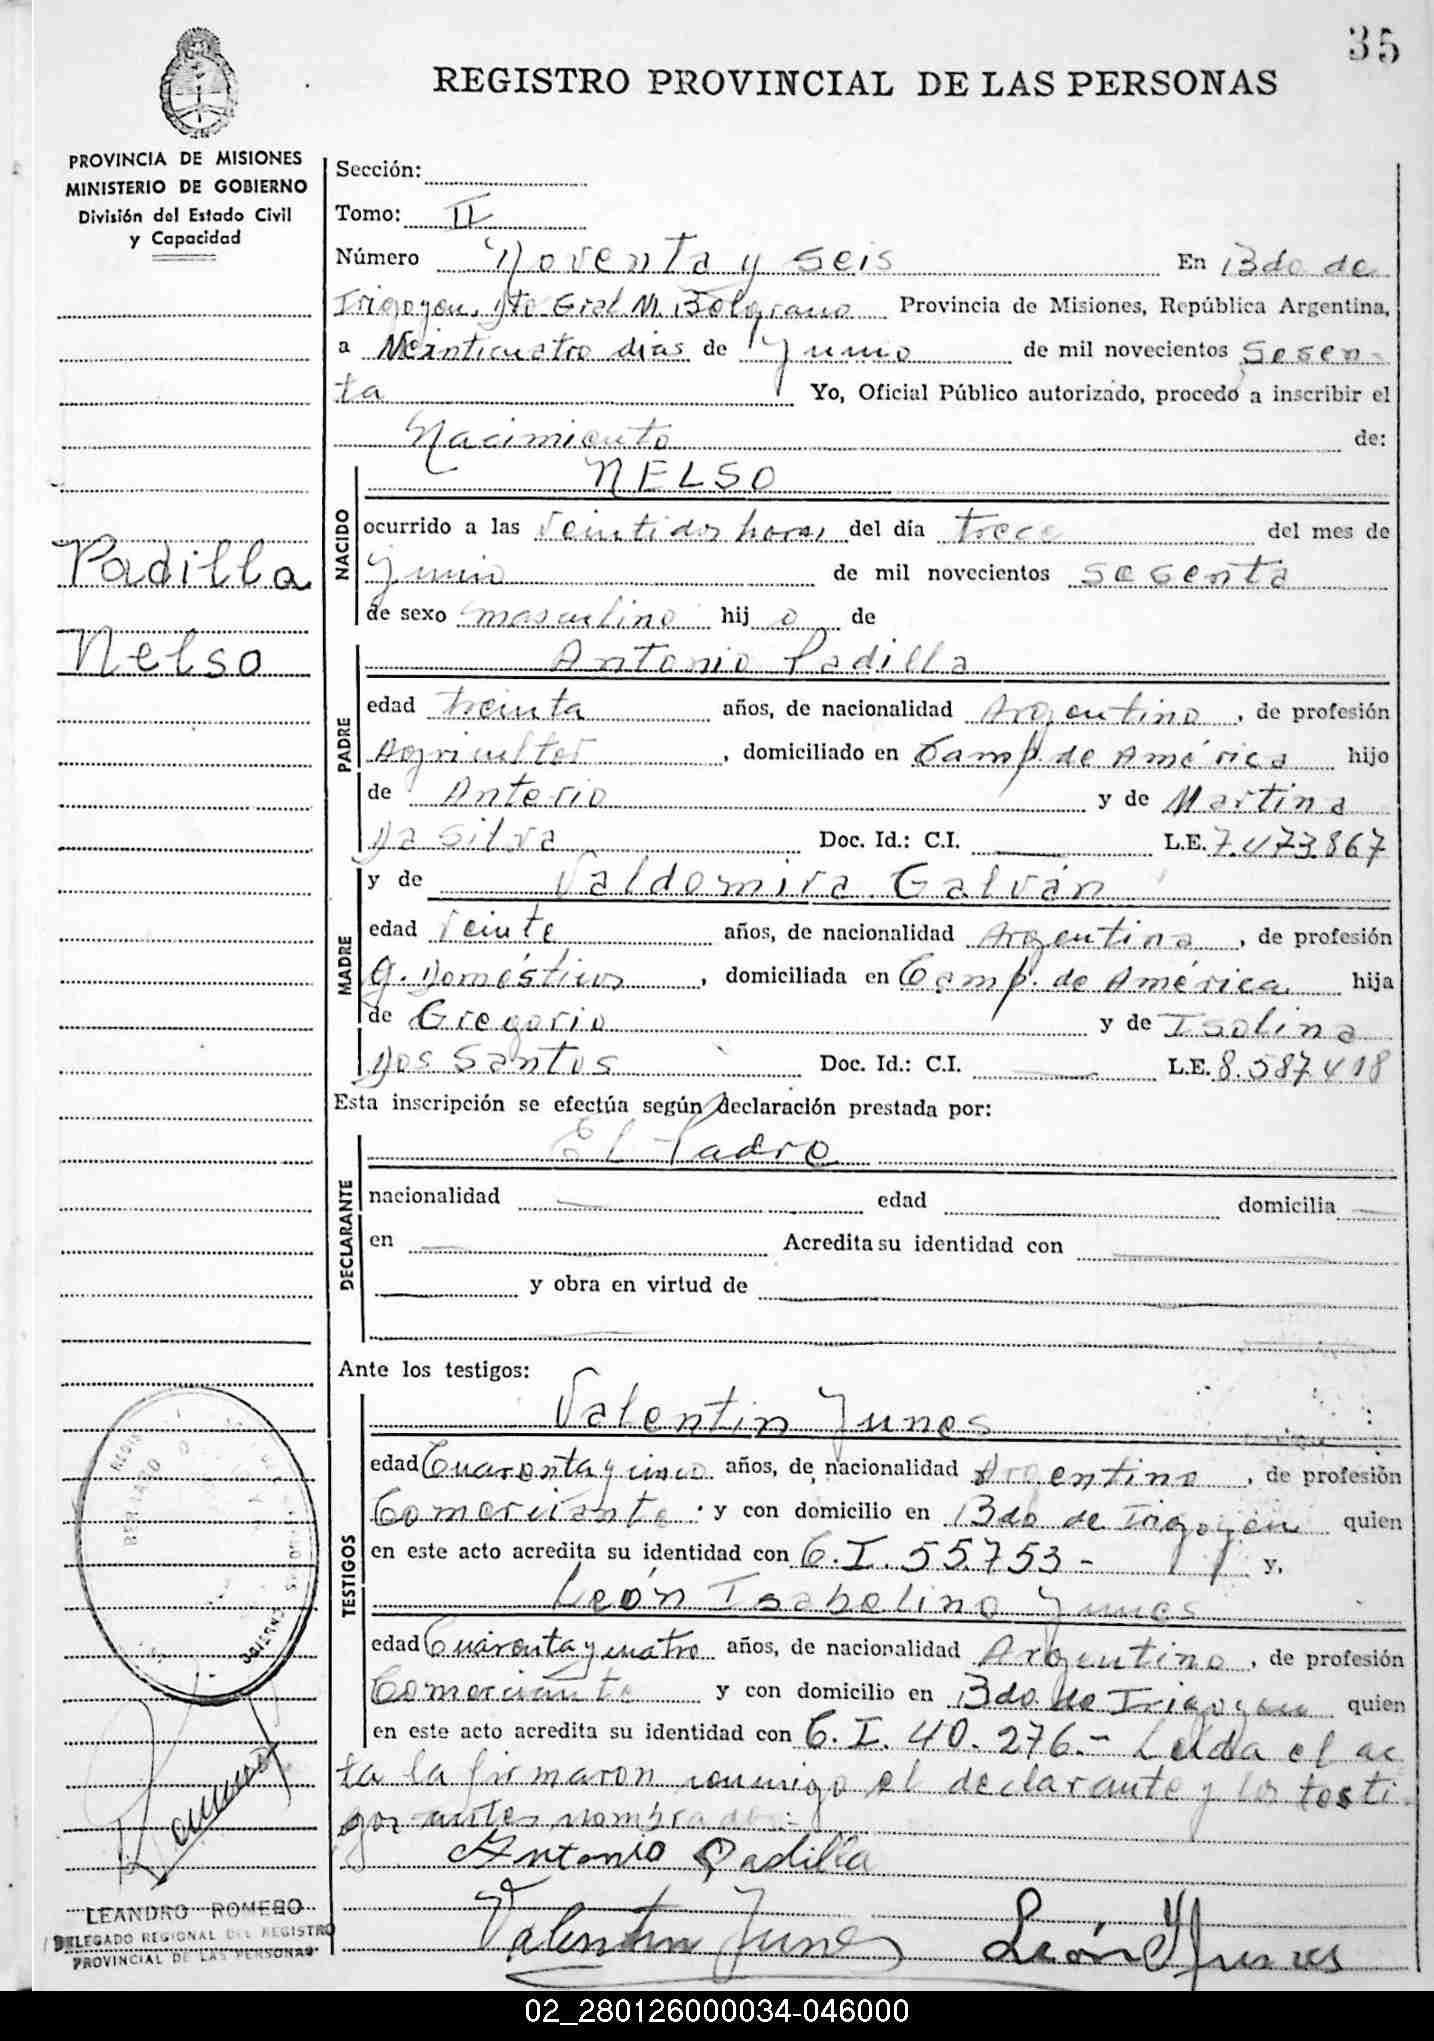 35
REGISTRO PROVINCIAL DE LAS PERSONAS
PROVINCIA DE MISIONES
MINISTERIO DE GOBIERNO
División del Estado Civil
y Capacidad
Padilla
Nelso
Sección:
Tomo: II
Número Noventa y seis En Bdo de
Irigoyen, Dto Gral M. Belgrano Provincia de Misiones, República Argentina,
a Veinticuatro dias de Junio de mil novecientos Sesen-
ta Yo, Oficial Público autorizado, procedo a inscribir el
Nacimiento de:
NACIDO
NELSO
ocurrido a las Veintidos horas del día trece del mes de
Junio de mil novecientos sesenta
de sexo masculino hij o de
PADRE
Antonio Padilla
edad treinta años, de nacionalidad Argentino, de profesión
Agricultor, domiciliado en Camp. de América hijo
de Anterio y de Martina
Da Silva Doc. Id.: C.I. L.E. 7.473.867
MADRE
y de Valdomira Galván
edad Veinte años, de nacionalidad Argentina, de profesión
Q. Domésticos, domiciliada en Camp. de América hija
de Gregorio y de Isolina
Dos Santos Doc. Id.: C.I. L.E. 8.587.418
Esta inscripción se efectúa según declaración prestada por:
DECLARANTE
El Padre
nacionalidad edad domicilia
en Acredita su identidad con
y obra en virtud de
Ante los testigos:
TESTIGOS
Valentin Junes
edad Cuarenta y cinco años, de nacionalidad Argentino, de profesión
Comerciante y con domicilio en Bdo de Irigoyen quien
en este acto acredita su identidad con C.I. 55.753- y,
León Isabelino Junes
edad Cuarenta y cuatro años, de nacionalidad Argentino, de profesión
Comerciante y con domicilio en Bdo de Irigoyen quien
en este acto acredita su identidad con C.I. 40.276.- Leida el ac
ta la firmaron conmigo el declarante y los testi-
gos antes nombrados:-
Antonio Padilla
Valentin Junes León Y Junes
Romero
LEANDRO ROMERO
DELEGADO REGIONAL DEL REGISTRO
PROVINCIAL DE LAS PERSONAS
02_280126000034-046000